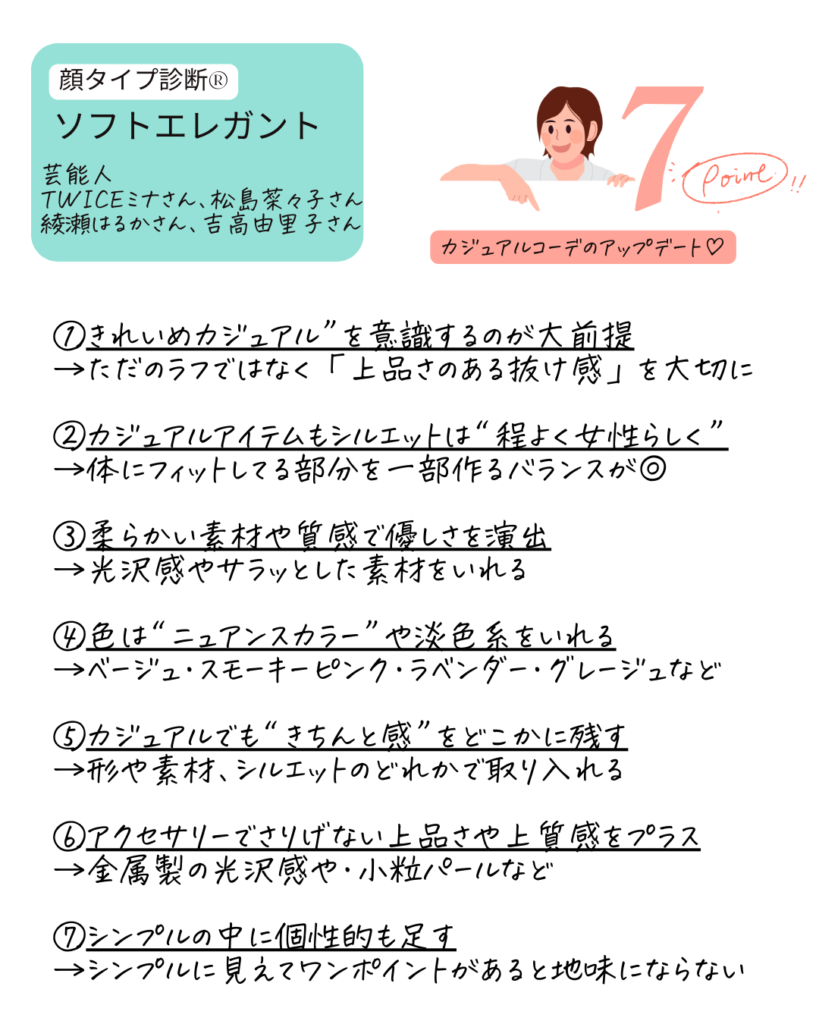 顔タイプ診断®
ソフトエレガント
芸能人
TWICEミナさん、松島菜々子さん
綾瀬はるかさん、吉高由里子さん
7
Point!!
カジュアルコーデのアップデート♡
①きれいめカジュアル”を意識するのが大前提
→ただのラフではなく「上品さのある抜け感」を大切に
②カジュアルアイテムもシルエットは“程よく女性らしく”
→体にフィットしてる部分を一部作るバランスが◎
③柔らかい素材や質感で優しさを演出
→光沢感やサラッとした素材をいれる
④色は“ニュアンスカラー”や淡色系をいれる
→ベージュ・スモーキーピンク・ラベンダー・グレージュなど
⑤カジュアルでも“きちんと感”をどこかに残す
→形や素材、シルエットのどれかで取り入れる
⑥アクセサリーでさりげない上品さや上質感をプラス
→金属製の光沢感や・小粒パールなど
⑦シンプルの中に個性的も足す
→シンプルに見えてワンポイントがあると地味にならない